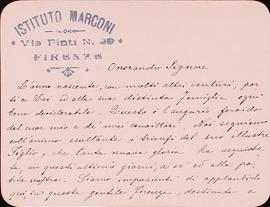 ISTITUTO MARCONI
Via Pinti N. 29
FIRENZE
Onorando Signore
L'anno nascente, con molti altri venturi, por
ti a Lei ed alla sua distinta famiglia ogni
bene desiderabile. Questo è l'augurio fervido
del cuor mio e de' miei convittori. Noi seguiamo
coll'animo esultante i trionfi del suo illustre
Figlio, che tanta nuova gloria ha acquistata
in questi ultimi giorni, a sè ed alla pa
tria nostra. Siamo impazienti di applaudirlo
qui, in questa gentile Firenze, destinata a